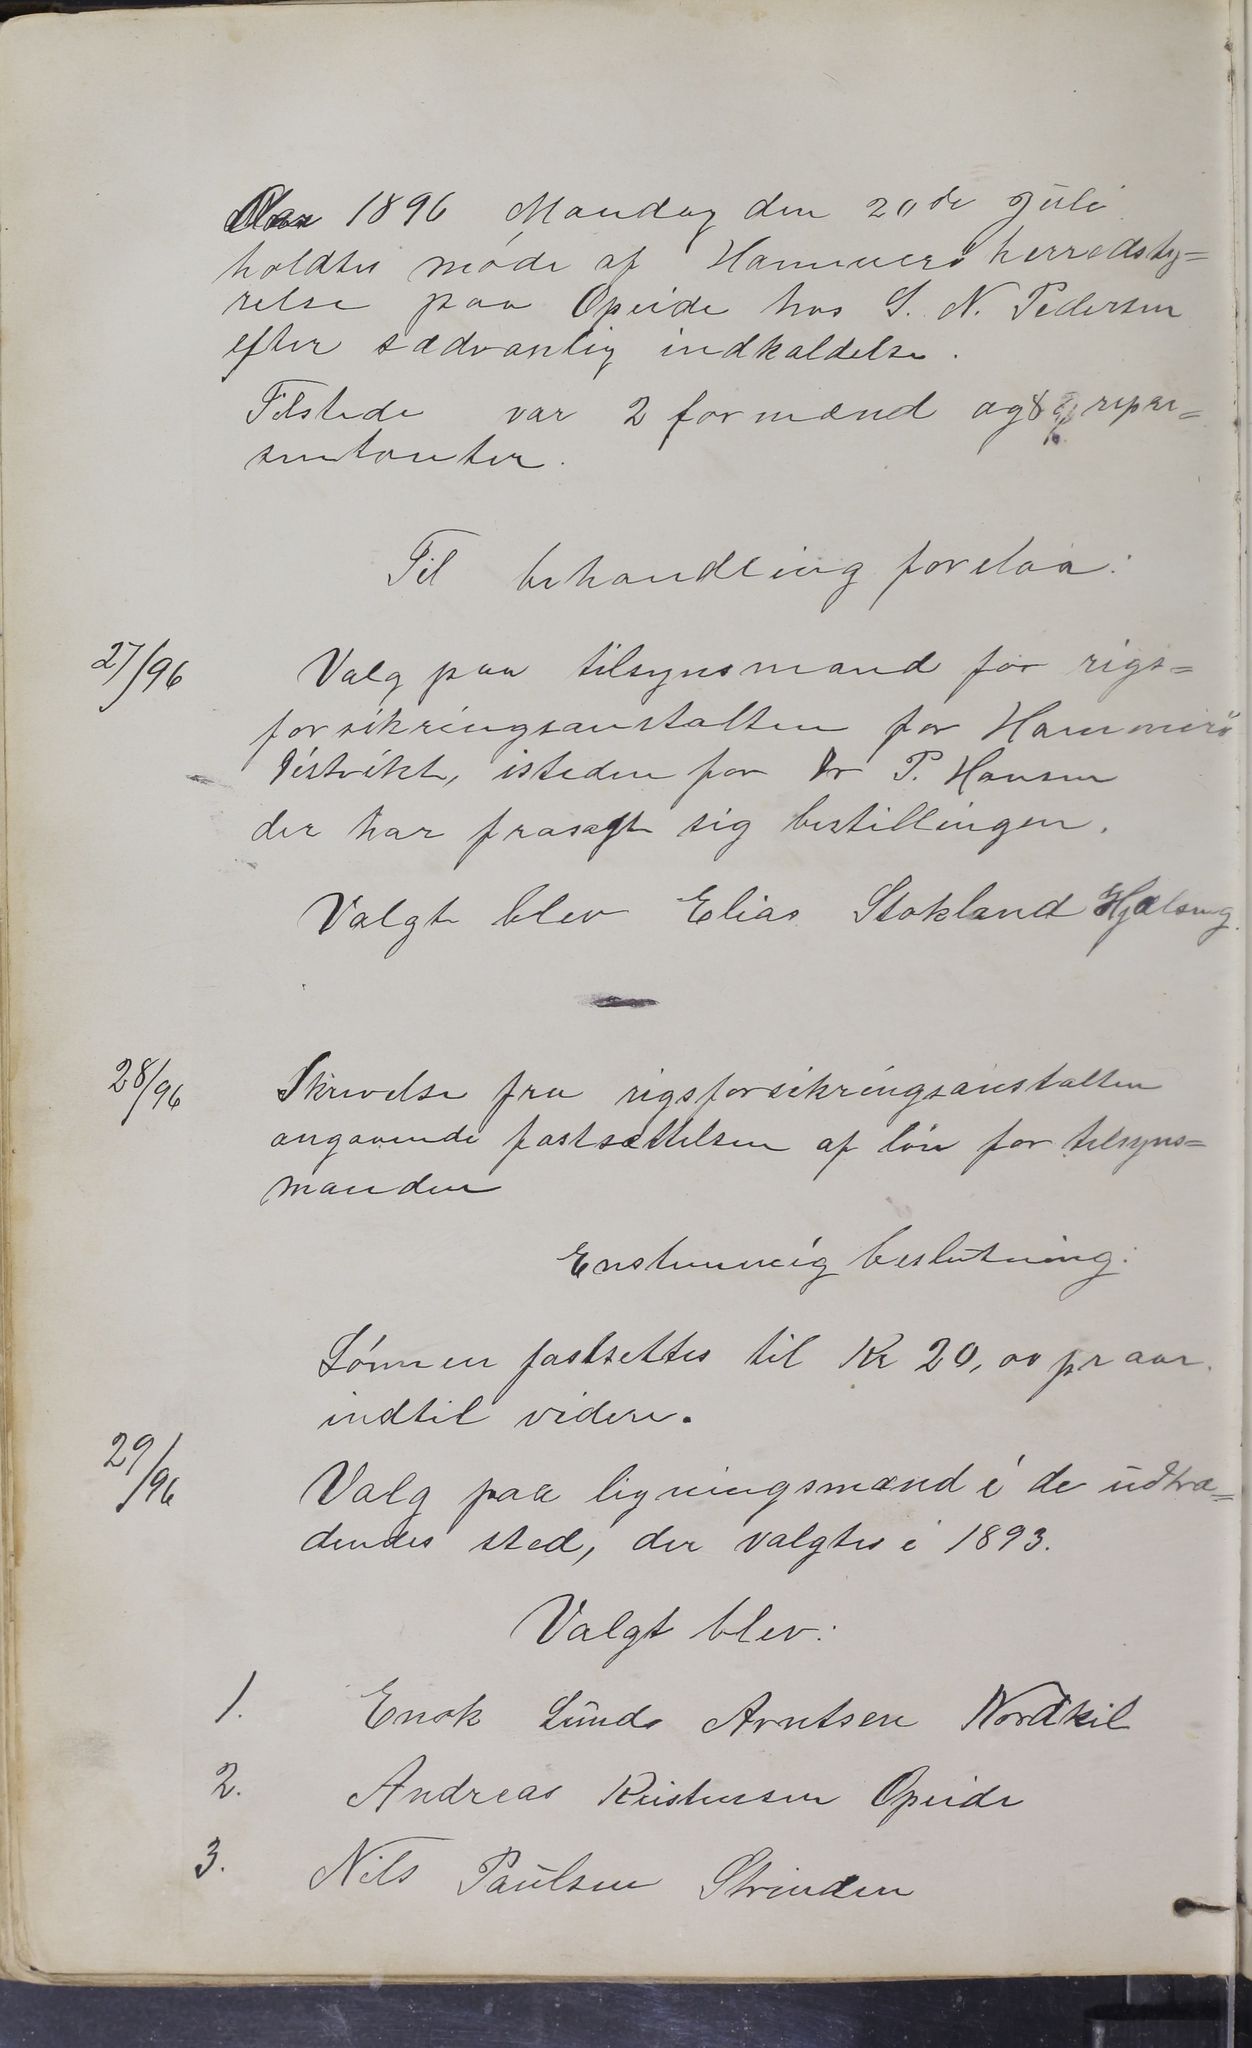 Aar 1896 Mandag den 20de Juli
holdtes møde af Hammerø herredsty=
relse paa Opeide hos S. N. Pedersen
efter sædvanlig indkaldelse.
Tilstede var 2 formænd og 8 repræ=
sentanter.
Til behandling forelaa:
27/96 Valg paa tilsynsmand for rigs=
forsikringsanstalten for Hammerø
distrikt, isteden for Hr P. Hansen
der har frasagt sig bestillingen.
Valgt blev Elias Stokland
28/96 Skrivelse fra rigsforsikringsanstalten
angaaende fastsættelsen af løn for tilsyns=
manden
Enstemmig beslutning:
Lønnen fastsettes til Kr 20,00 pr aar.
indtil videre.
29/96 Valg paa ligningsmænd i de udtræ=
dendes sted, der valgtes i 1893.
Valgt blev:
1. Enok Lunds Arntsen Nordkil
2. Andreas Kristensen Opeide
3. Nils Paulsen Strinden